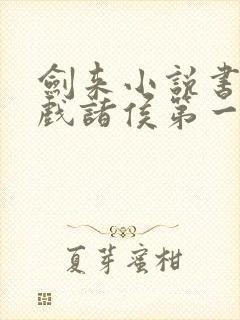 劍來小說書
戲諸侯第一
夏芽蜜柑